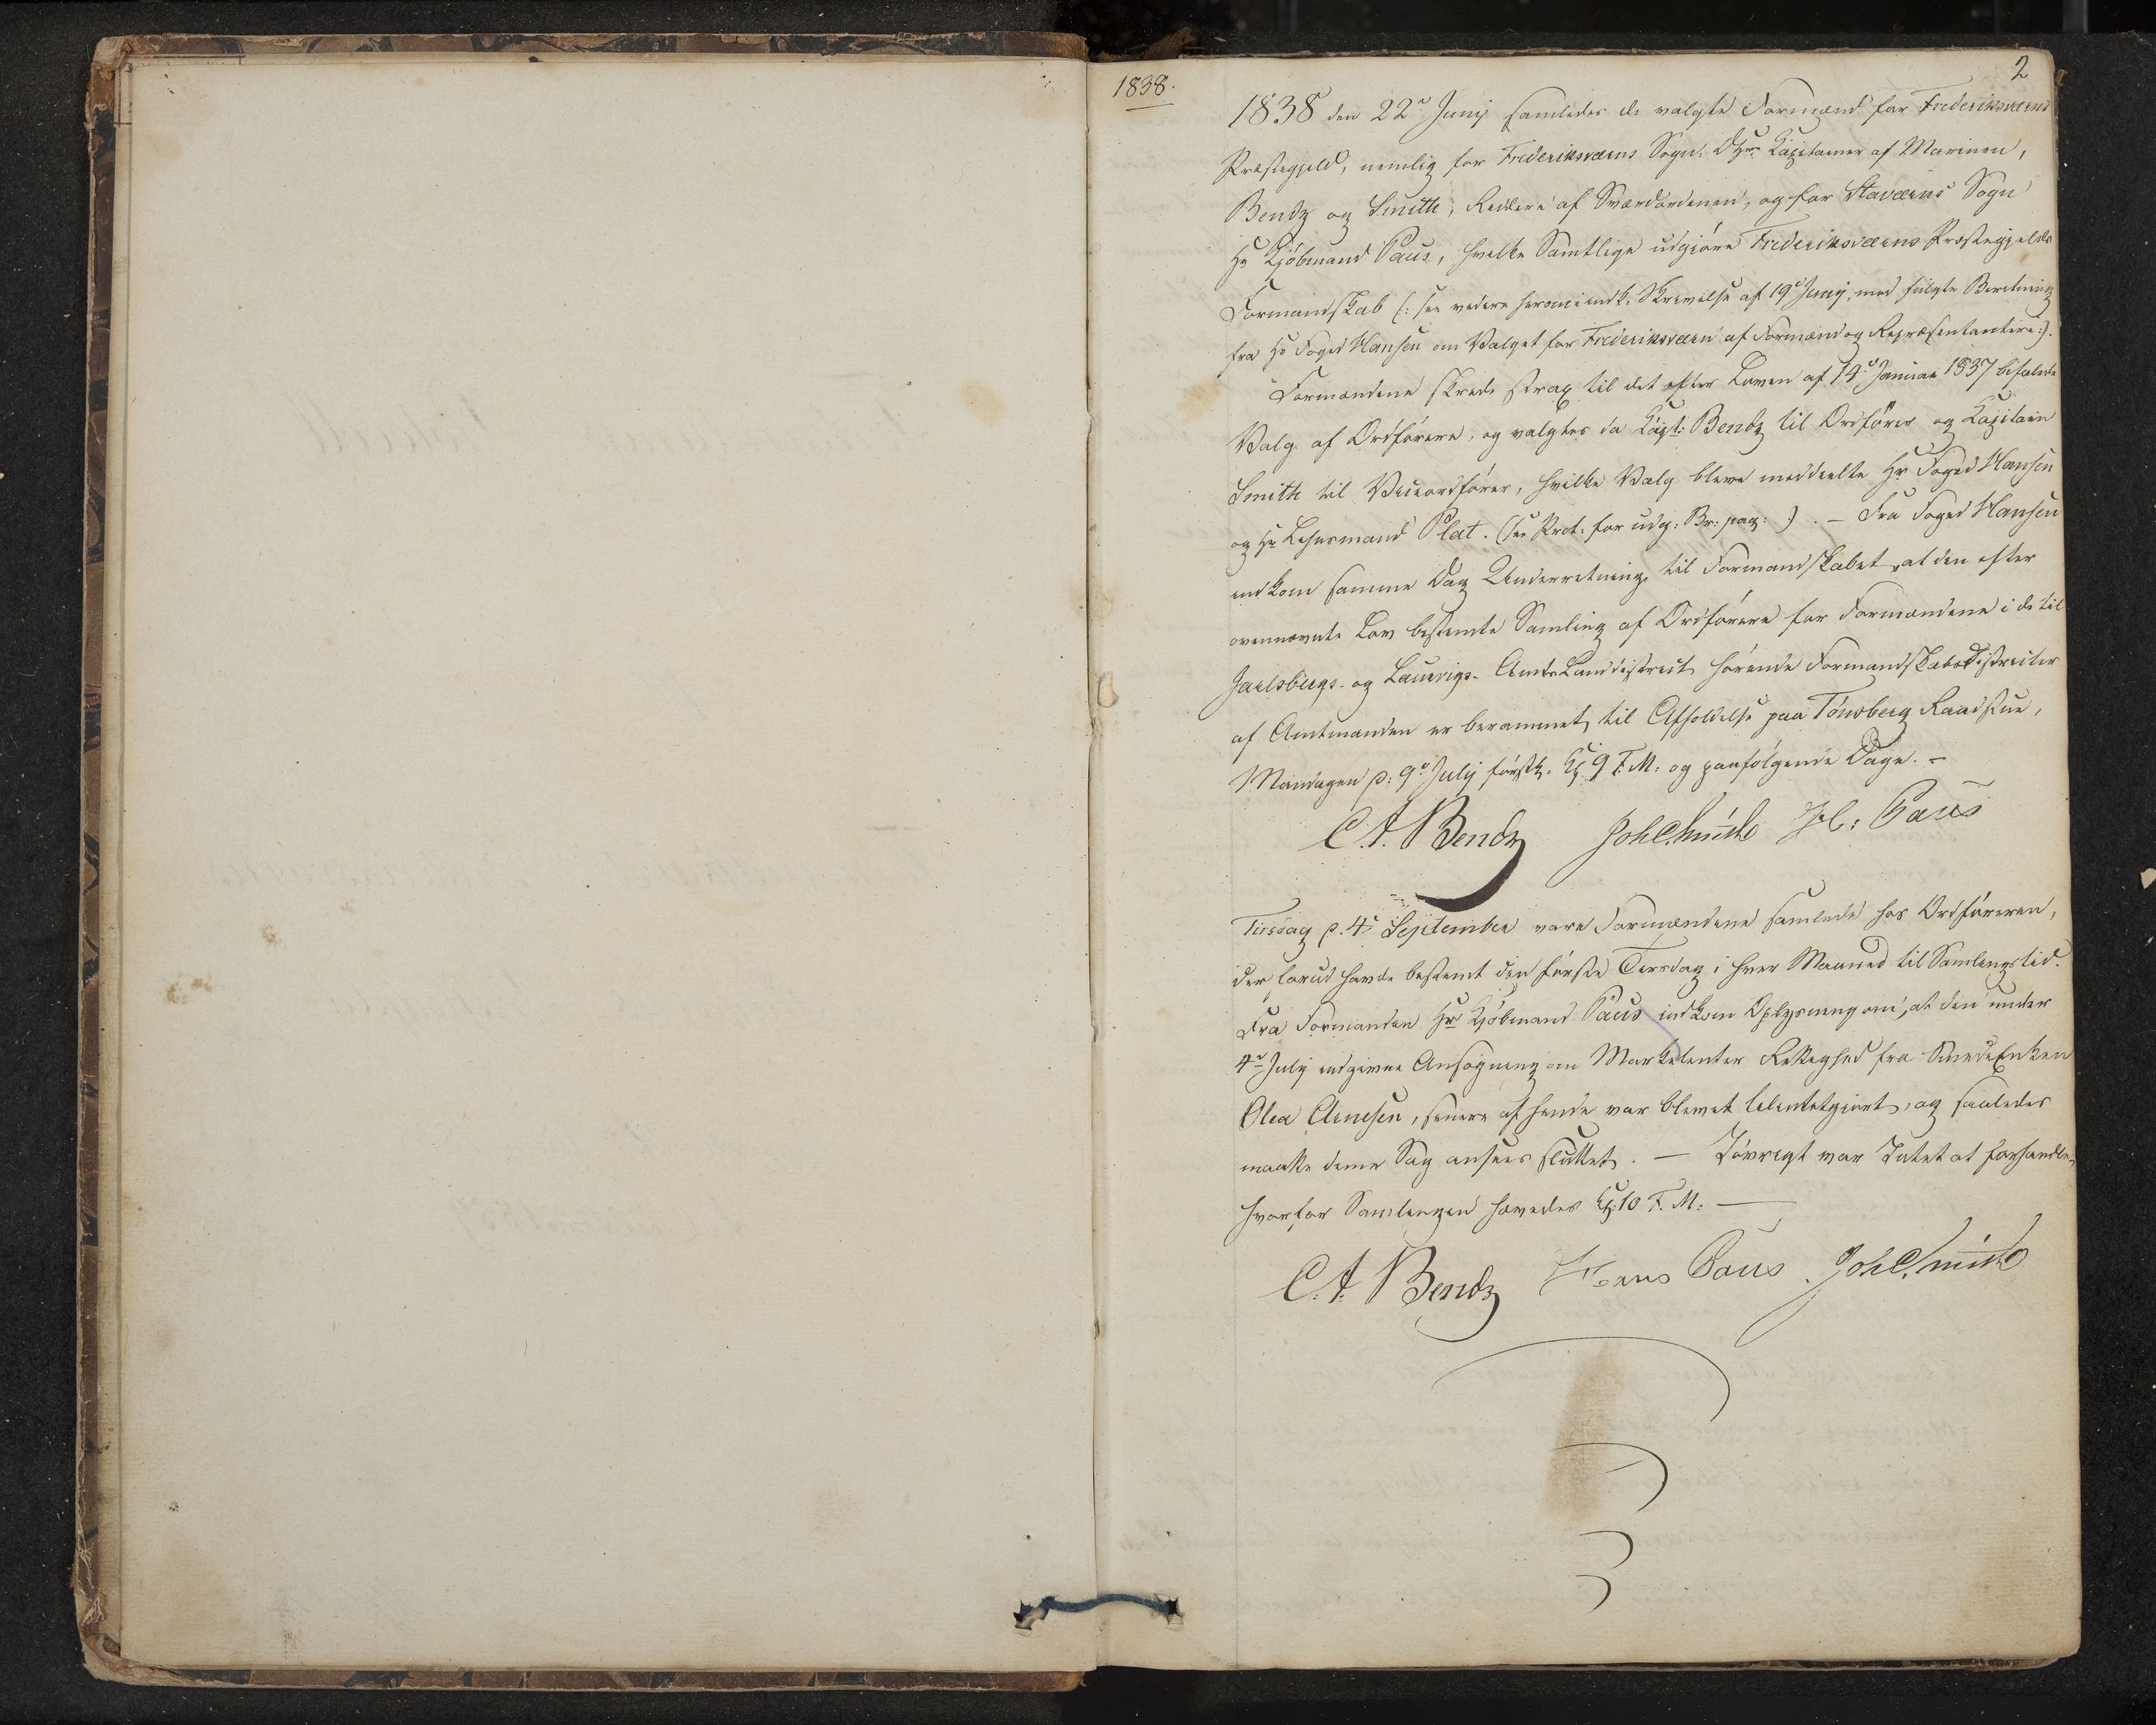 1838.
2
1838 den 22de Junij samledes de valgte Formænd for Frederiksværns
Præstegjeld, nemlig for Frederiksværns Sogn: DHrr. Capitainer af Marinen,
Bendz og Smith, Riddere af Sværdordenen, og for Staværns Sogn
Hr Kjöbmand Paus, hvilke Samtlige udgjöre Frederiksværns Præstegjelds
Formandskab (: see videre herom indk: Skrivelse af 19de Junij, med fulgte Beretning
fra Hr Foged Hansen om Valget for Frederiksværn af Formænd og Repræsentantere:).
Formændene skred strax til det efter Loven af 14de Januar 1837 befalede
Valg af Ordförere, og valgtes da Capt: Bendz til Ordförer og Capitain
Smith til Viceordförer, hvilke Valg bleve meddeelte Hr Foged Hansen
og Hr Lehnsmand Plat. (see Prot: for udg: Br: pag: ). – Fra Foged Hansen
indkom samme Dag Underretning til Formandskabet, at den efter
ovennævnte Lov bestemte Samling af Ordförere for Formændene i de til
Jarlsbergs- og Laurvigs- Amts Landdistrict hörende Formandskabsdistricter
af Amtmanden er berammet til Afholdelse paa Tönsberg Raadstue,
Mandagen d: 9de Julij förstk. Kl 9 F.M. og paafölgende Dage. –
C.A. Bendz Joh C. Smith H: Paus
Tirsdag d. 4de September vare Formændene samlede hos Ordföreren,
der forud havde bestemt den förste Tirsdag i hver Maaned til Samlingstid.
Fra Formanden Hr Kjöbmand Paus indkom Oplysning om, at den under
4de Julij indgivne Ansögning om Marketenter Rettighed fra Smedeenken
Olea Arnesen, senere af hende var blevet tilintetgjort, og saaledes
maatte denne Sag ansees sluttet. – Iövrigt var Intet at forhandle,
hvorfor Samlingen hævedes Kl: 10 F.M: –
C.A. Bendz Hans Paus Joh C. Smith